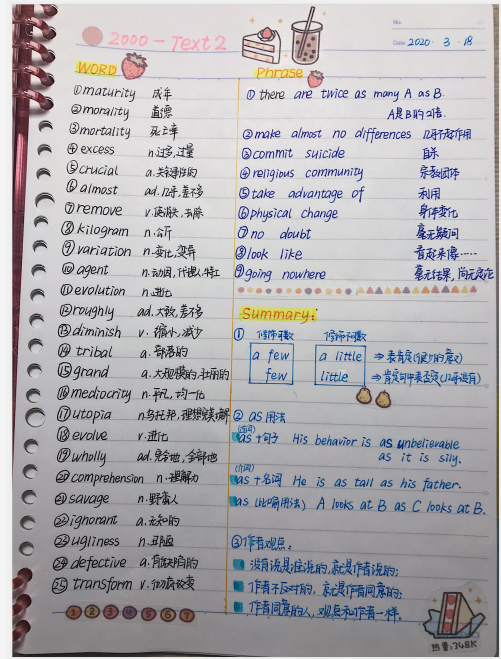 No.
Date 2020 · 3 · 18
2000 - Text 2
WORD
①maturity 成年
②morality 道德
③mortality 死亡率
④excess n.过多,过量
⑤crucial a.关键性的
⑥almost ad.几乎,差不多
⑦remove v.消除,去除
⑧kilogram n.公斤
⑨variation n.变化,变异
⑩agent n.动因,代理人,特工
⑪evolution n.进化
⑫roughly ad.大致,差不多
⑬diminish v.缩小,减少
⑭tribal a.部落的
⑮grand a.大规模的,壮丽的
⑯mediocrity n.平凡,均一化
⑰utopia n.乌托邦,理想
⑱evolve v.进化
⑲wholly ad.完全地,全部地
⑳comprehension n.理解力
㉑savage n.野蛮人
㉒ignorant a.无知的
㉓ugliness n.丑陋
㉔defective a.有缺陷的
㉕transform v.彻底改变
① ② ③ ④ ⑤ ⑥ ⑦
Phrase
①there are twice as many A as B.
A是B的2倍.
②make almost no differences 几乎不起作用
③commit suicide 自杀
④religious community 宗教团体
⑤take advantage of 利用
⑥physical change 身体变化
⑦no doubt 毫无疑问
⑧look like 看起来像……
⑨going nowhere 毫无结果,
Summary:
① 修饰可数 修饰不可数
a few a little ⇒ 表肯定(很少的意义)
few little ⇒ 肯定句中表否定(几乎没有)
② as用法
(连词)
as +句子 His behavior is as unbelievable
as it is sily.
(介词)
as +名词 He is as tall as his father.
as (比喻用法) A looks at B as C looks at B.
③作者观点:
没有说是谁说的,就是作者说的;
作者不反对的,就是作者同意的;
作者同意的人,观点和作者一样。
热量:748K